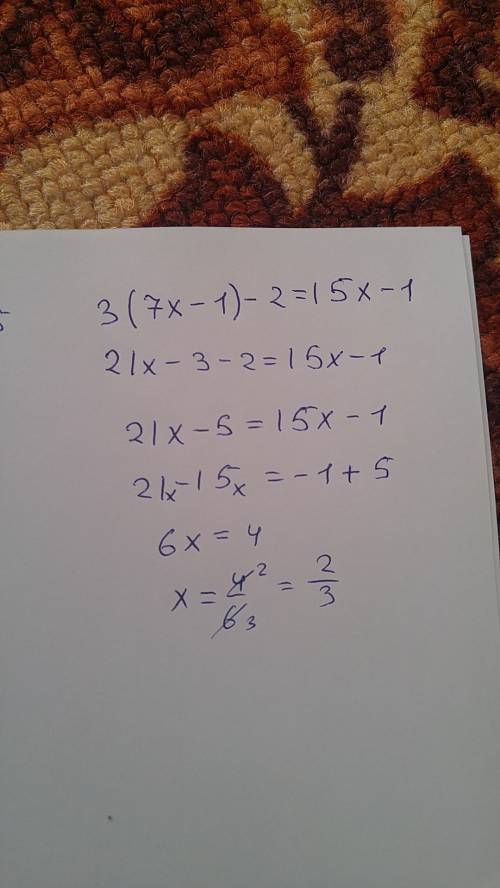 3(7x-1)-2=15x-1
21x-3-2=15x-1
21x-5=15x-1
21x-15x=-1+5
6x=4
x=4/6 2 3 = 2/3